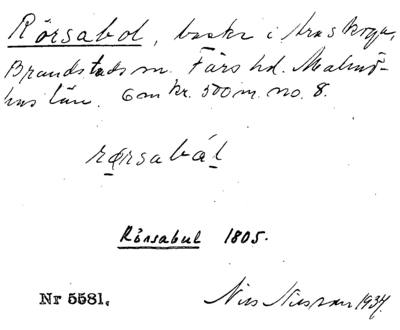 Rörsabol, backe i
Brandstads sn. Färs hd. Malmö-
hus län. 6 m kr. 500 m. no. 8.
rørsabál
Rörsabul 1805.
Nr 5581.
Nils Nilsson 1934.